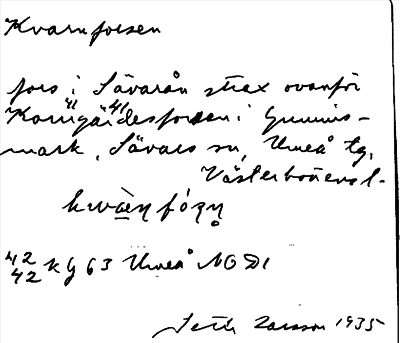 Kvarnforsen
fors i Sävarån strax ovanför
Korngärdesforsen i Gunnis-
mark, Sävars sn, Umeå tg,
Västerbottens l.
kwàɳ fóʂɳ̥
42 kg 63 Umeå NO D1
42
Seth Larsson 1935